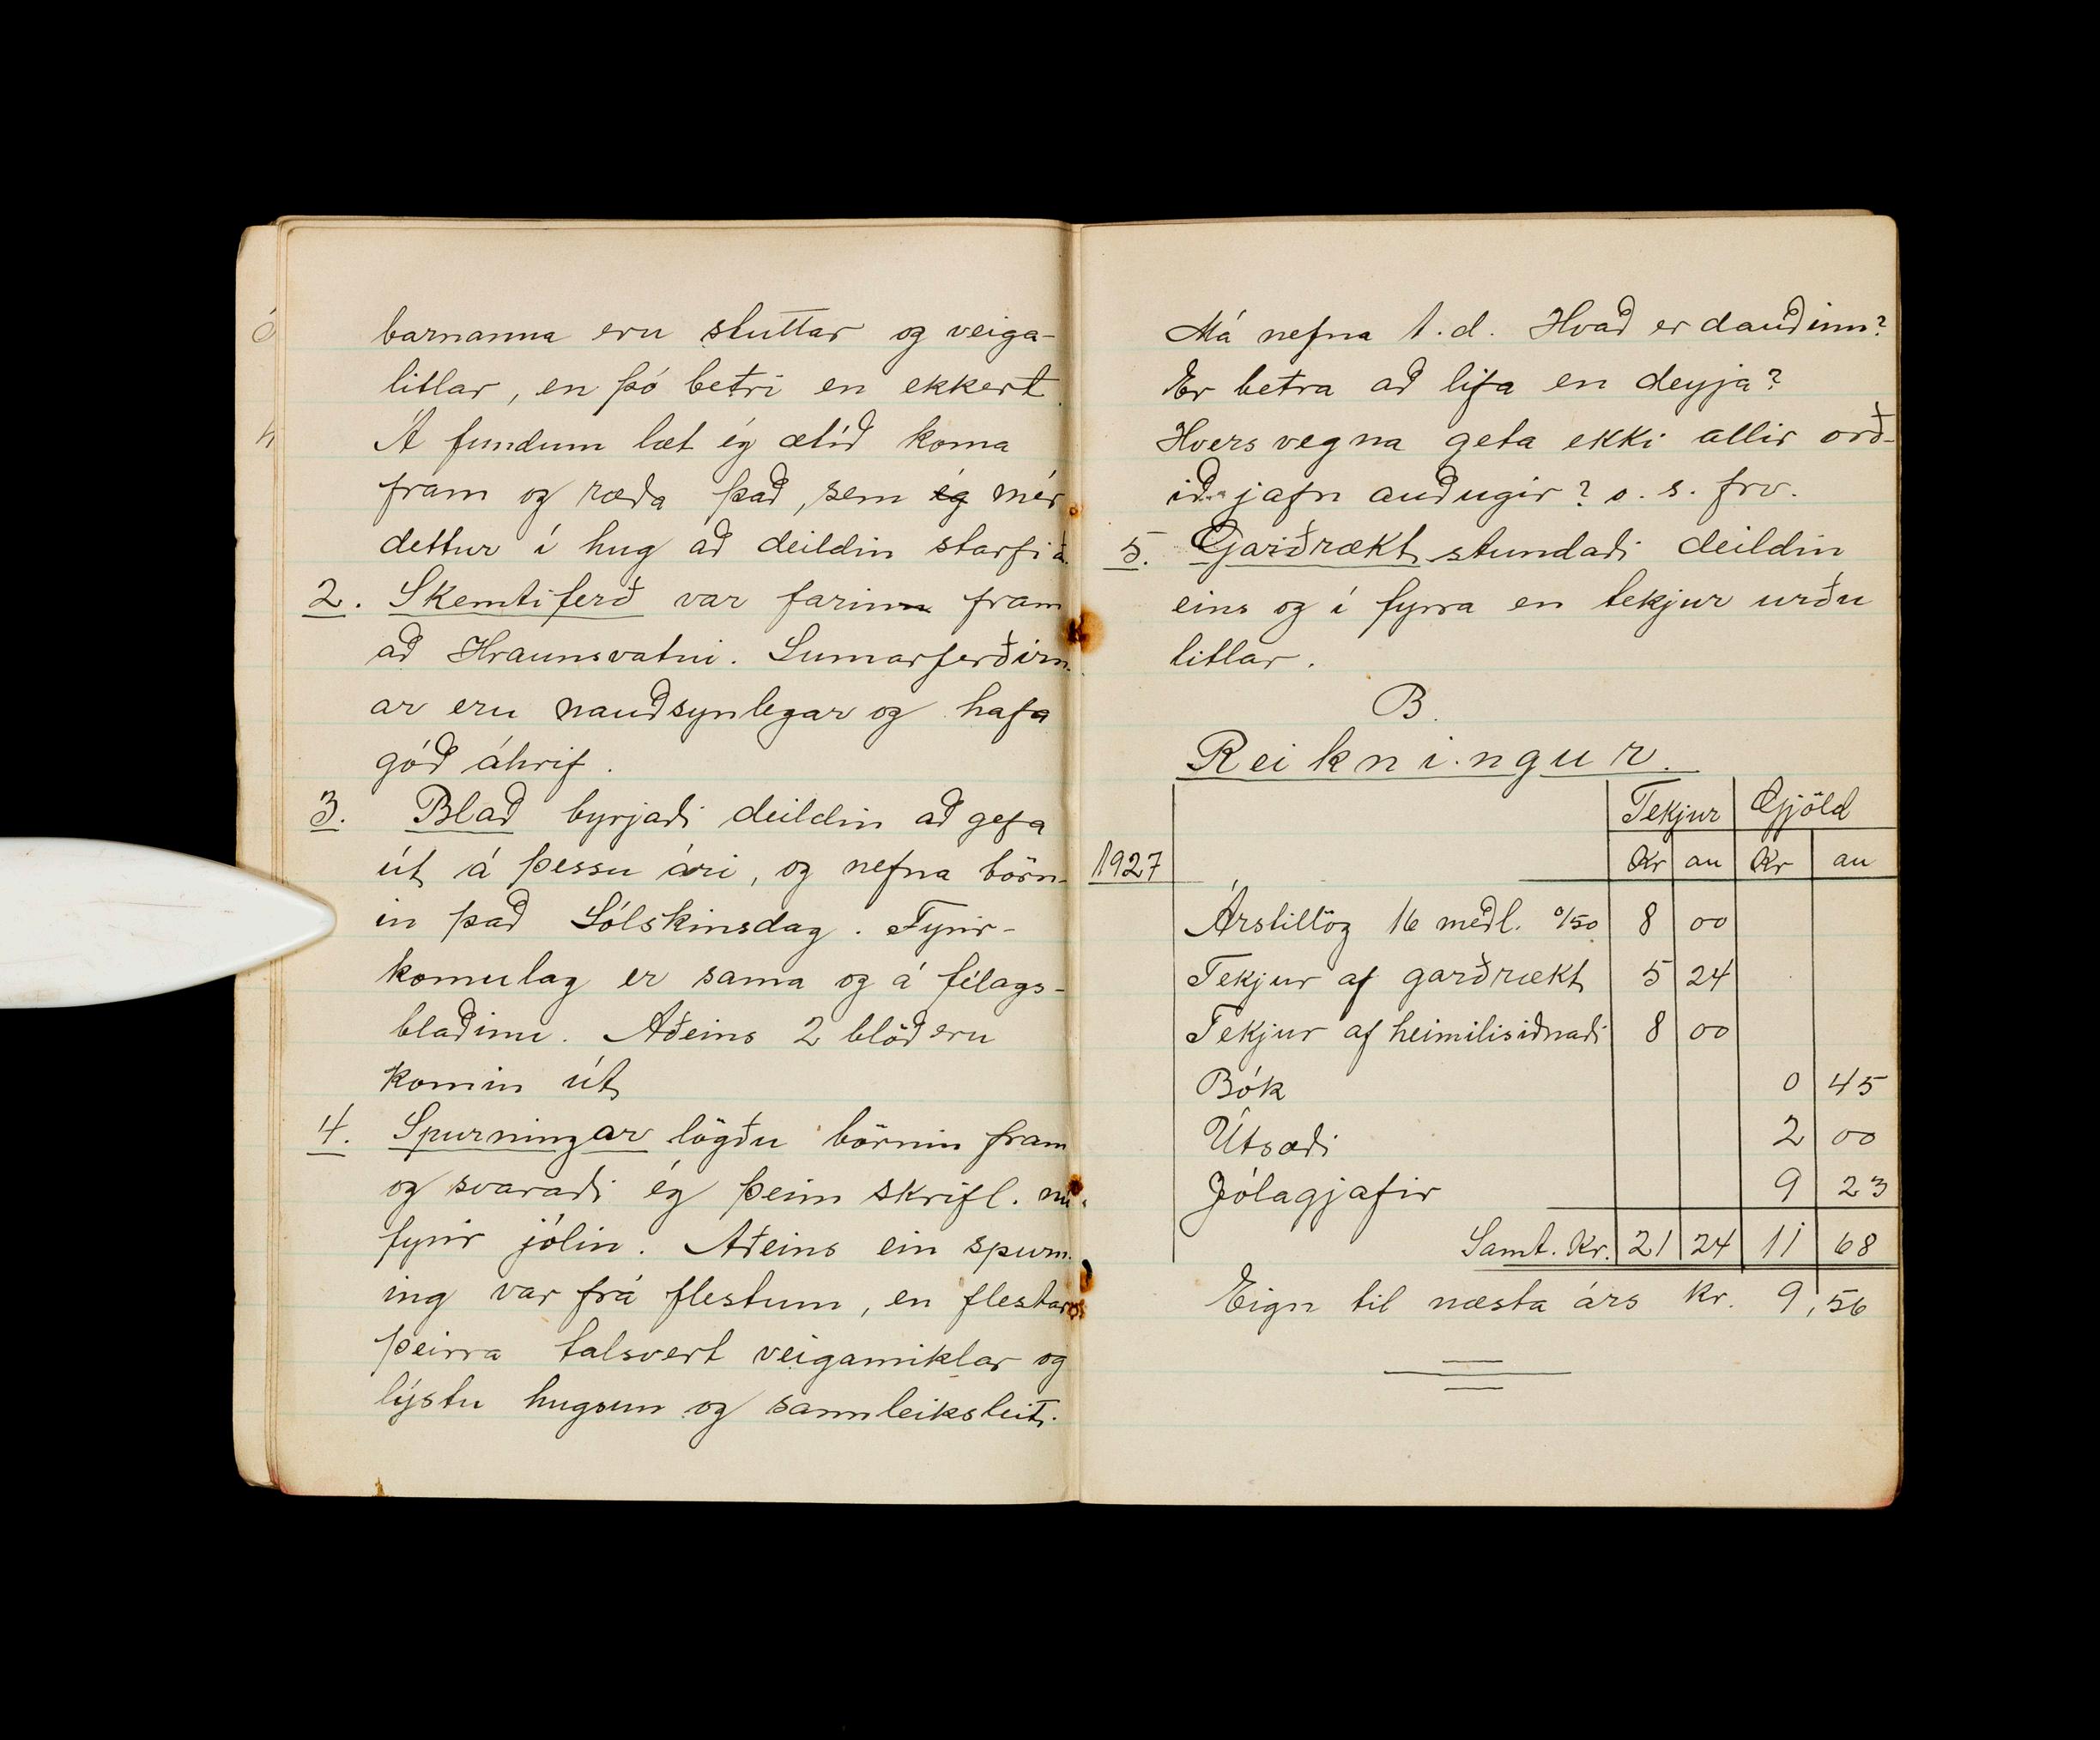 barnanna eru stuttar og veiga-
litlar, en þó betri en ekkert.
Á fundum læt ég ætíð koma
fram og ræða það, sem ég mér
dettur í hug að deildin starfi á.
2. Skemtiferð var farin fram
að Hraunsvatni. Sumarferðirn-
ar eru nauðsynlegar og hafa
góð áhrif.
3. Blað byrjaði deildin að gefa
út á þessu ári, og nefna börn-
in það Sólskinsdag. Fyrir-
komulag er sama og á félags-
blaðinu. Aðeins 2 blöð eru
komin út
4. Spurningar lögðu börnin fram
og svaraði ég þeim skrifl. nú
fyrir jólin. Aðeins ein spurn-
ing var frá flestum, en flestar
þeirra talsvert veigamiklar og
lýstu hugsun og sannleiksleit.
Má nefna t.d. Hvað er dauðinn?
Er betra að lifa en deyja?
Hvers vegna geta ekki allir orð-
ið jafn auðugir? o.s.frv.
5. Garðrækt stundaði deildin
eins og í fyrra en tekjur urðu
litlar.
B.
Reikningur.
Tekjur Gjöld
1927 Kr au Kr au
Árstillög 16 meðl. º/50 8 00
Tekjur af garðrækt 5 24
Tekjur af heimilisiðnaði 8 00
Bók 0 45
Útsæði 2 00
Jólagjafir 9 23
Samt. Kr. 21 24 11 68
Eign til næsta árs Kr. 9,56